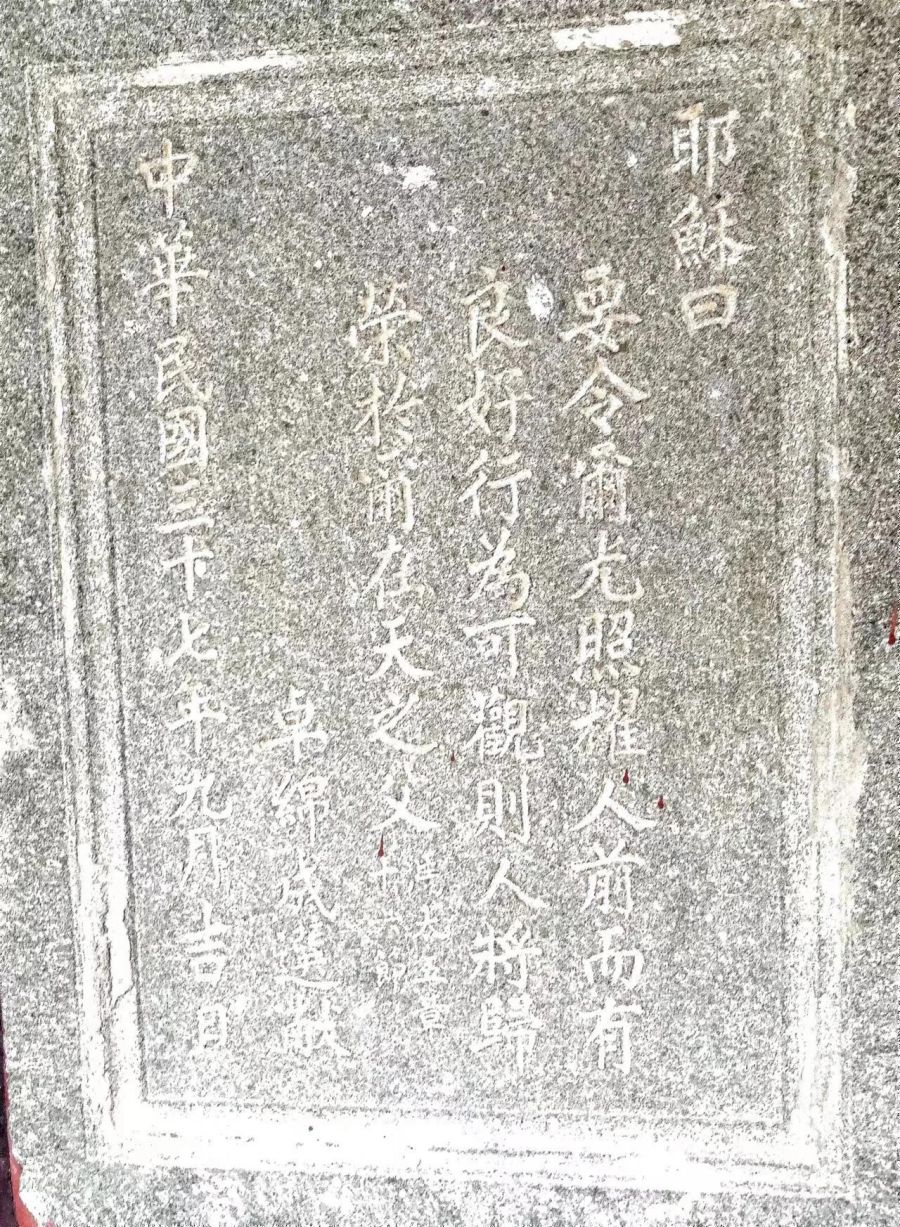 耶穌曰
要令爾光照耀人前而有
良好行為可觀則人將歸
榮於爾在天之父
太五章
十六節
卓綿成選獻
中華民國三十七年九月吉日